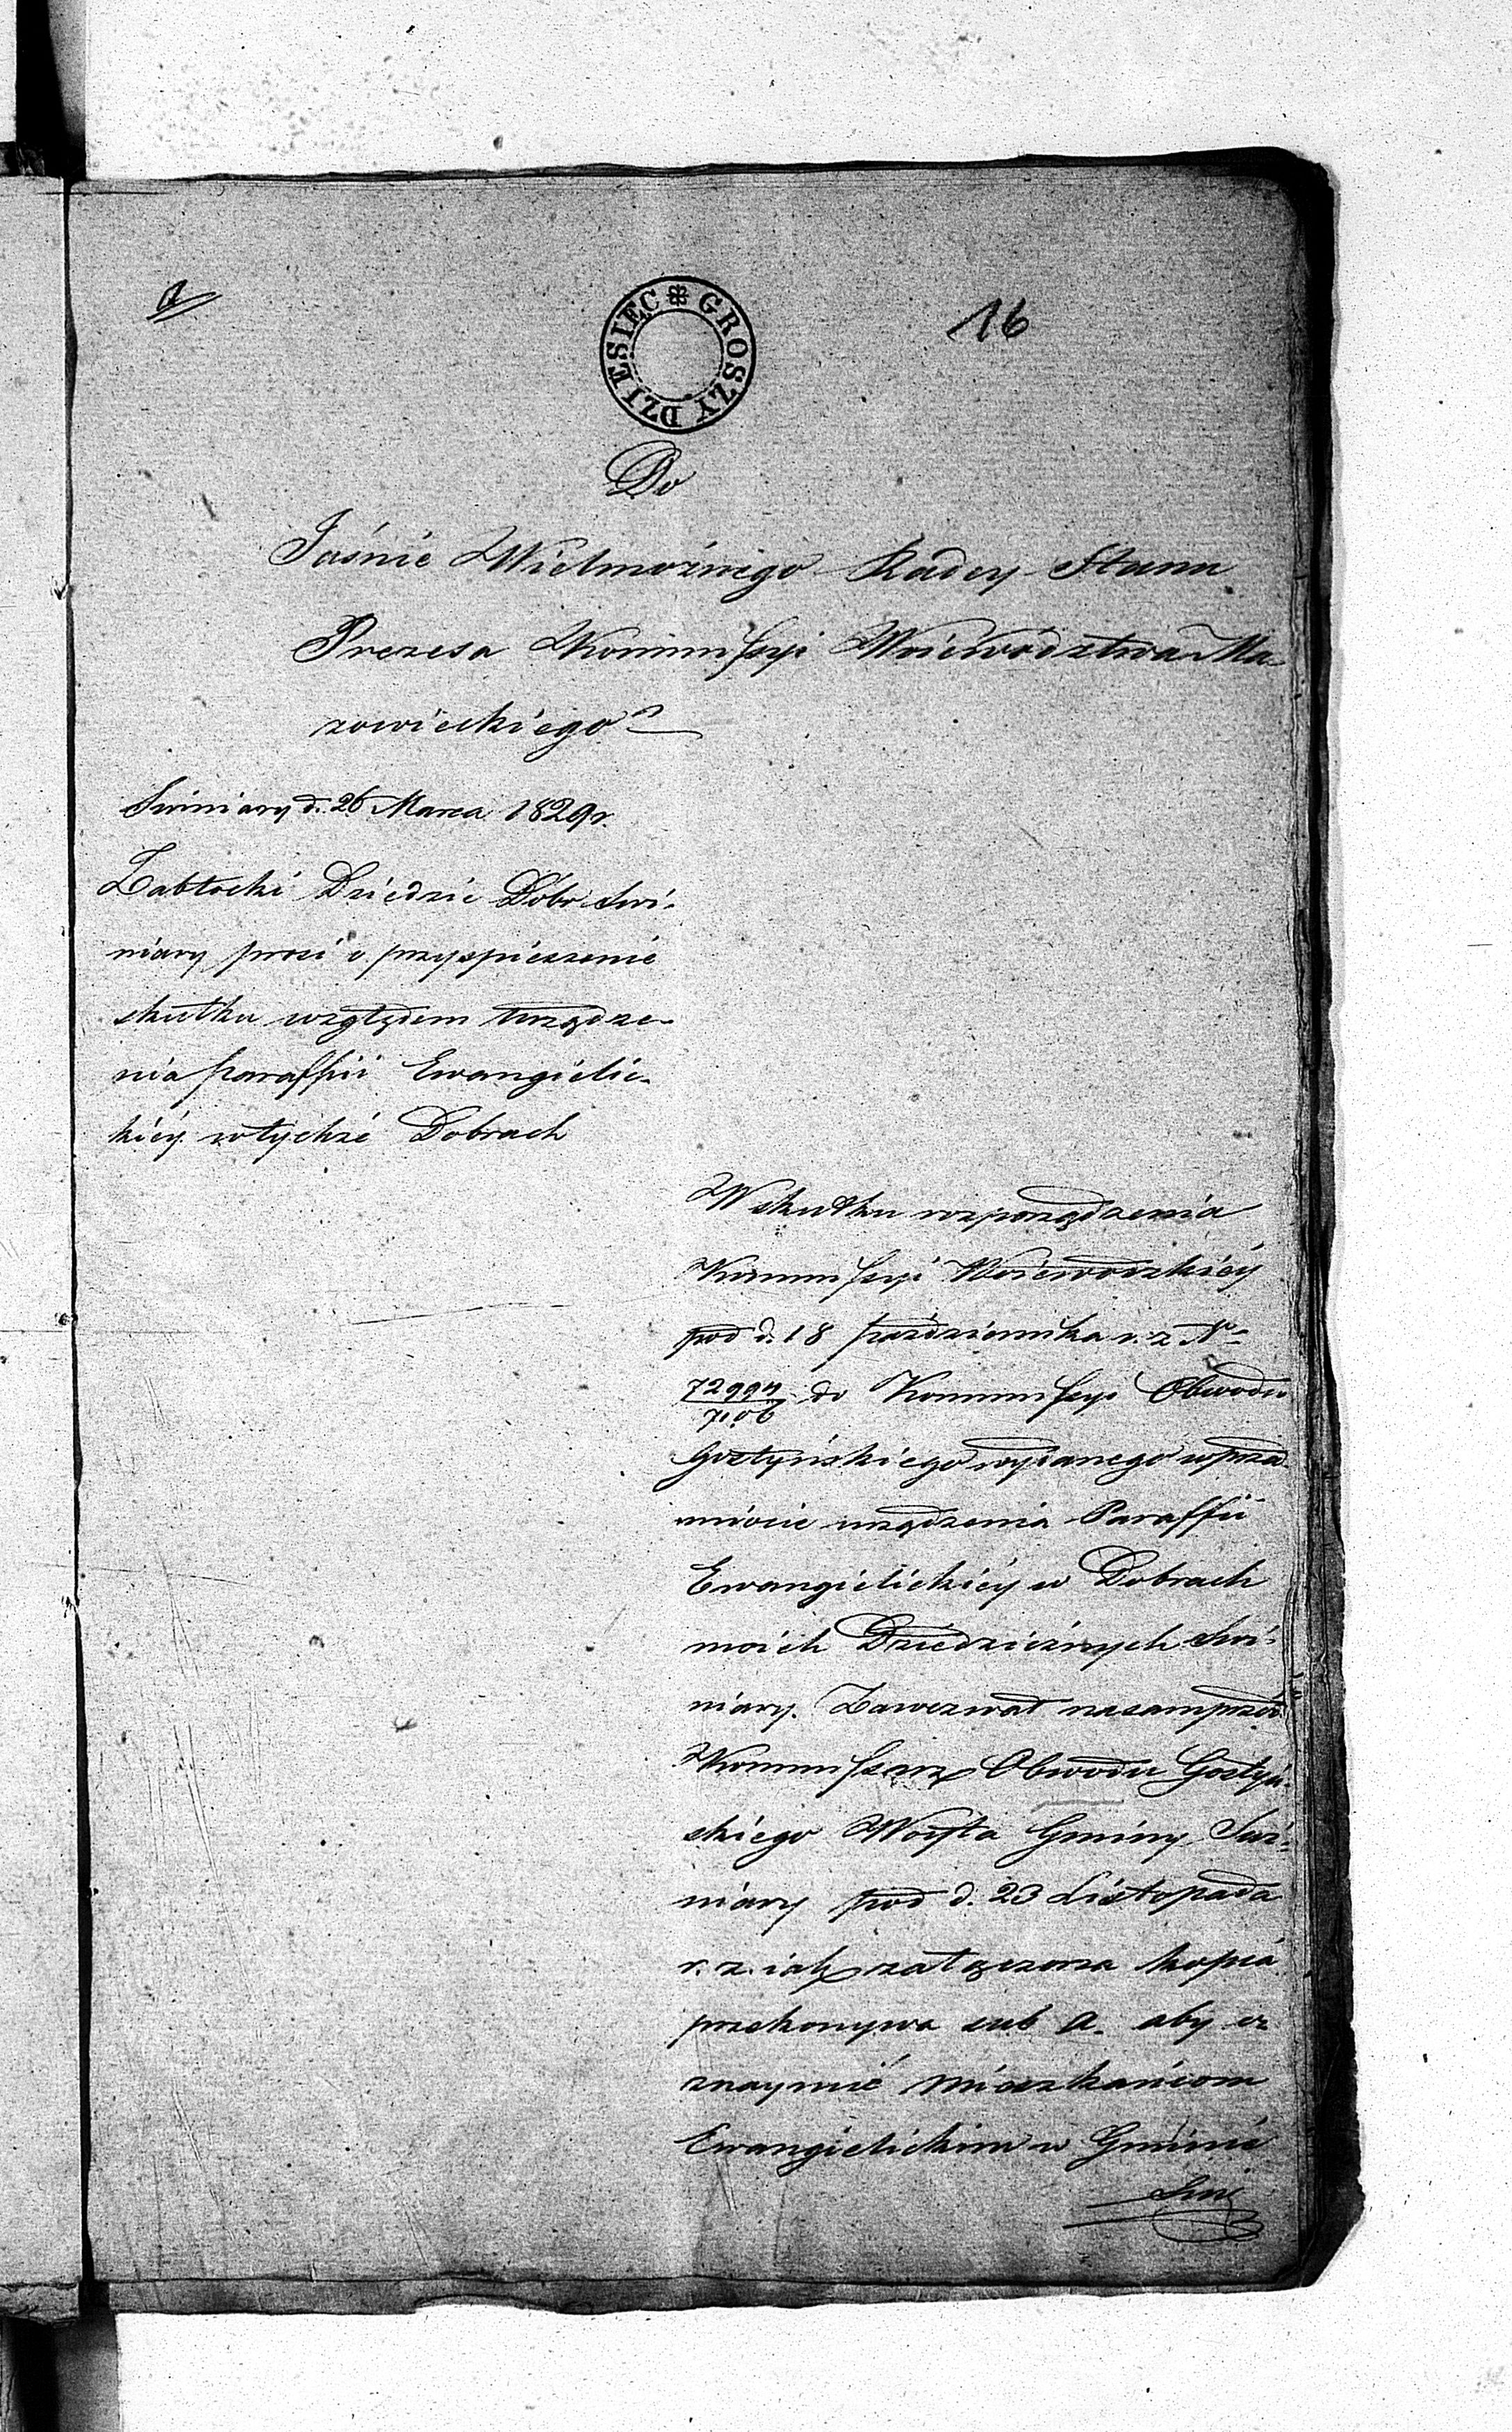 a
DZIESIĘC GROSZY
16
Do
Jaśnie Wielmożnego Radcy Stanu
Prezesa Kommissyi Woiewództwa Ma-
zowieckiego
Swiniary d. 26 Marca 1829 r.
Zabłocki Dziedzic Dóbr Swi-
niary prosi o przyspieszenie
skutku względem urządze-
nia Paraffii Ewangielic-
kiéy w tychże Dobrach
W skutku rozporządzenia
Kommissyi Woiewodzkiéy
pod d. 18 Października r. z. N
do Kommissyi Obwodu
Gostyńskiego wydanego w prze-
miocie urządzenia Paraffii
Ewangielickiéy w Dobrach
moich Dziedzicznych Swi-
niary. Zawezwał nasamprzód
Kommissarz Obwodu Gostyń-
skiego Woyta Gminy Swi-
niary pod d. 23 Listopada
r. z. iak załączona kopia
przekonywa sub a. aby o-
znaymić Mieszkańcom
Ewangielickim w Gminie
Swi